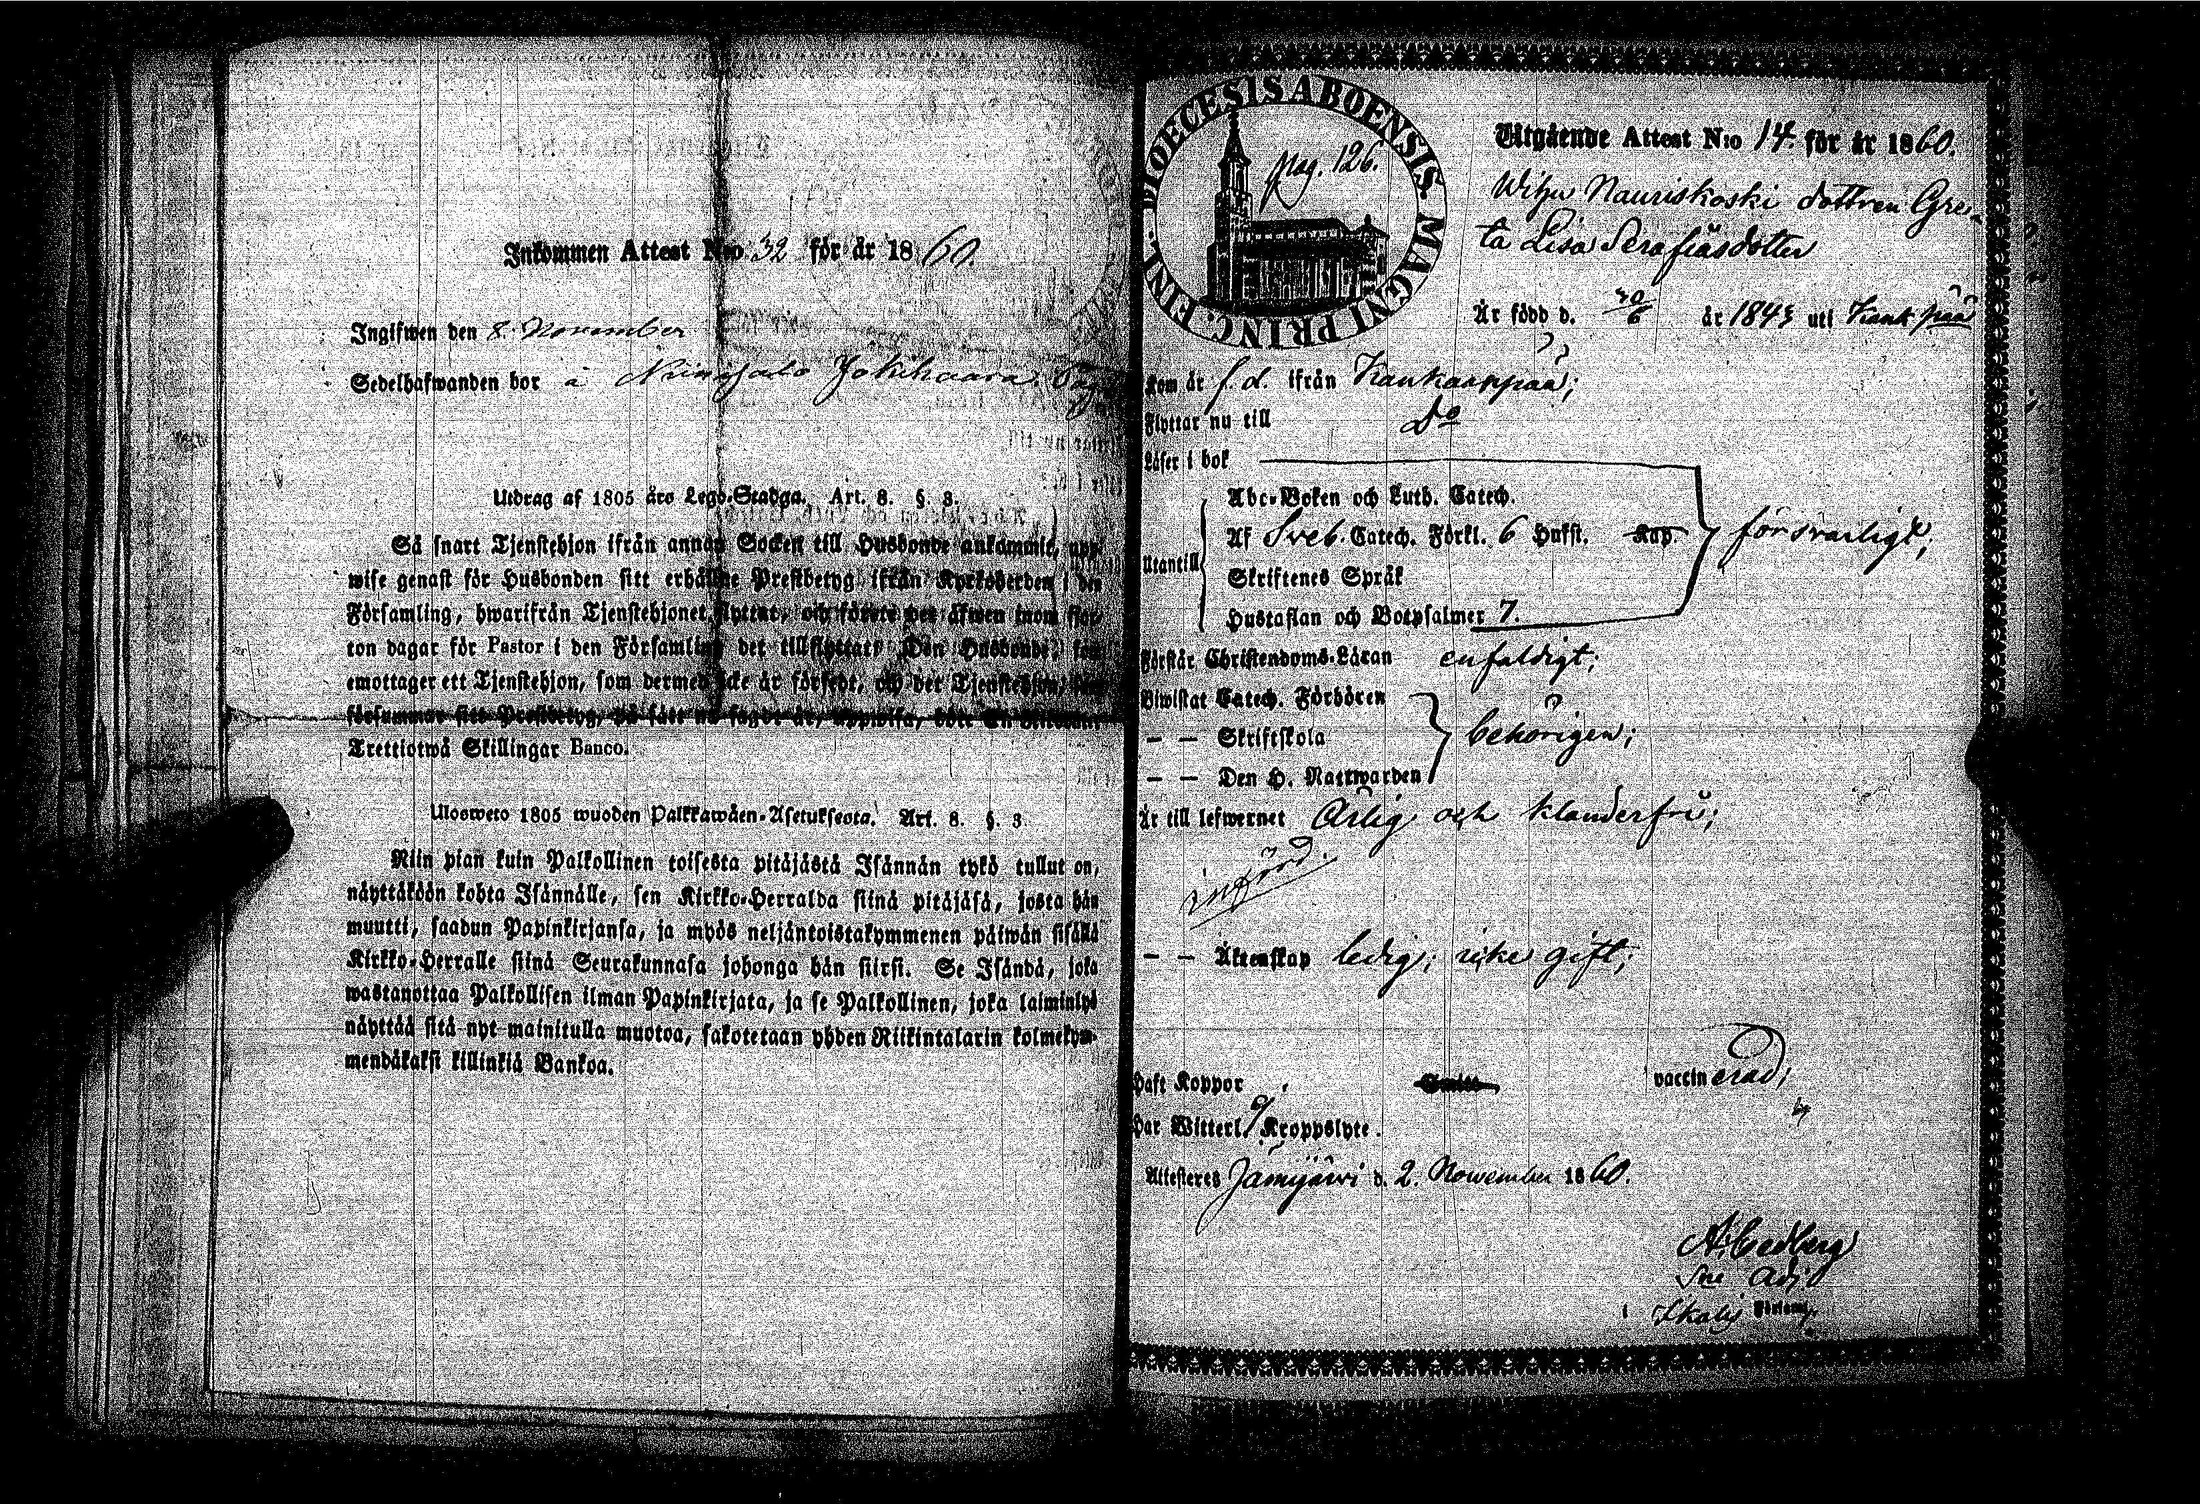 Inkommen Attest N:o 32 för år 1860.
Ingifwen den 8. November
Sedelhafwanden bor å Niinisalo Jokihaara
Utdrag af 1805 års Lego-Stadga. Art. 8. §. 3.
Så snart Tjenstehjon ifrån annan Socken till Husbonde ankommit, upp-
wise genast för Husbonden sitt erhållne Prestbetyg ifrån Kyrkoherden i den
Församling, hwarifrån Tjenstehjonet flyttat, och förete det äfwen inom fjor-
ton dagar för Pastor i den Församling det tillflyttat. Den Husbonde, som
emottager ett Tjenstehjon, som dermed icke är försedt, och det Tjenstehjon, som
försummar sitt Prestbetyg, på sätt nu sagdt är, uppwisa, böte En Riksdaler
Trettiotwå Skillingar Banco.
Ulosweto 1805 wuoden Palkkawäen-Asetuksesta. Art. 8. §. 3.
Niin pian kuin Palkollinen toisesta pitäjästä Isännän tykö tullut on,
näyttäköön kohta Isännälle, sen Kirkko-Herralda siinä pitäjäsä, josta hän
muutti, saadun Papinkirjansa, ja myös neljäntoistakymmenen päiwän sisällä
Kirkko-Herralle siinä Seurakunnasa johonga hän siirsi. Se Isändä, joka
wastanottaa Palkollisen ilman Papinkirjata, ja se Palkollinen, joka laiminlyö
näyttää sitä nyt mainitulla muotoa, sakotetaan yhden Riikintalarin kolmekym-
mendäkaksi killinkiä Bankoa.
DIOECESIS ABOENSIS MAGNI PRINC. FINL.
pag. 126.
Utgående Attest N:o 14. för år 1860.
Wihu Nauriskoski dottren Gre-
ta Lisa Serafiasdotter
Är född d. 30/6 år 1843 uti Kankaanpää
Kom år f. d. ifrån Kankaanpää;
Flyttar nu till Do
Läser i bok
Utantill
Abc-Boken och Luth. Catech.
Af Sveb. Catech. Förkl. 6 Hufst. Kap.
försvarligt;
Skriftenes Språk
Hustaflan och Botpsalmer 7.
Förstår Christendoms-Läran enfaldigt;
Biwistat Catech. Förhören
— — Skriftskola behörigen;
— — Den H. Nattwarden
Är till lefwernet Ärlig och klanderfri;
införd.
— — Äktenskap ledig; icke gift;
Haft Koppor vaccinerad;
Har Witterl. Kroppslyte.
Attesteres Jämijärwi d. 2. November 1860.
A. Cedberg
Sne Adj.
i Ikalis Församl.